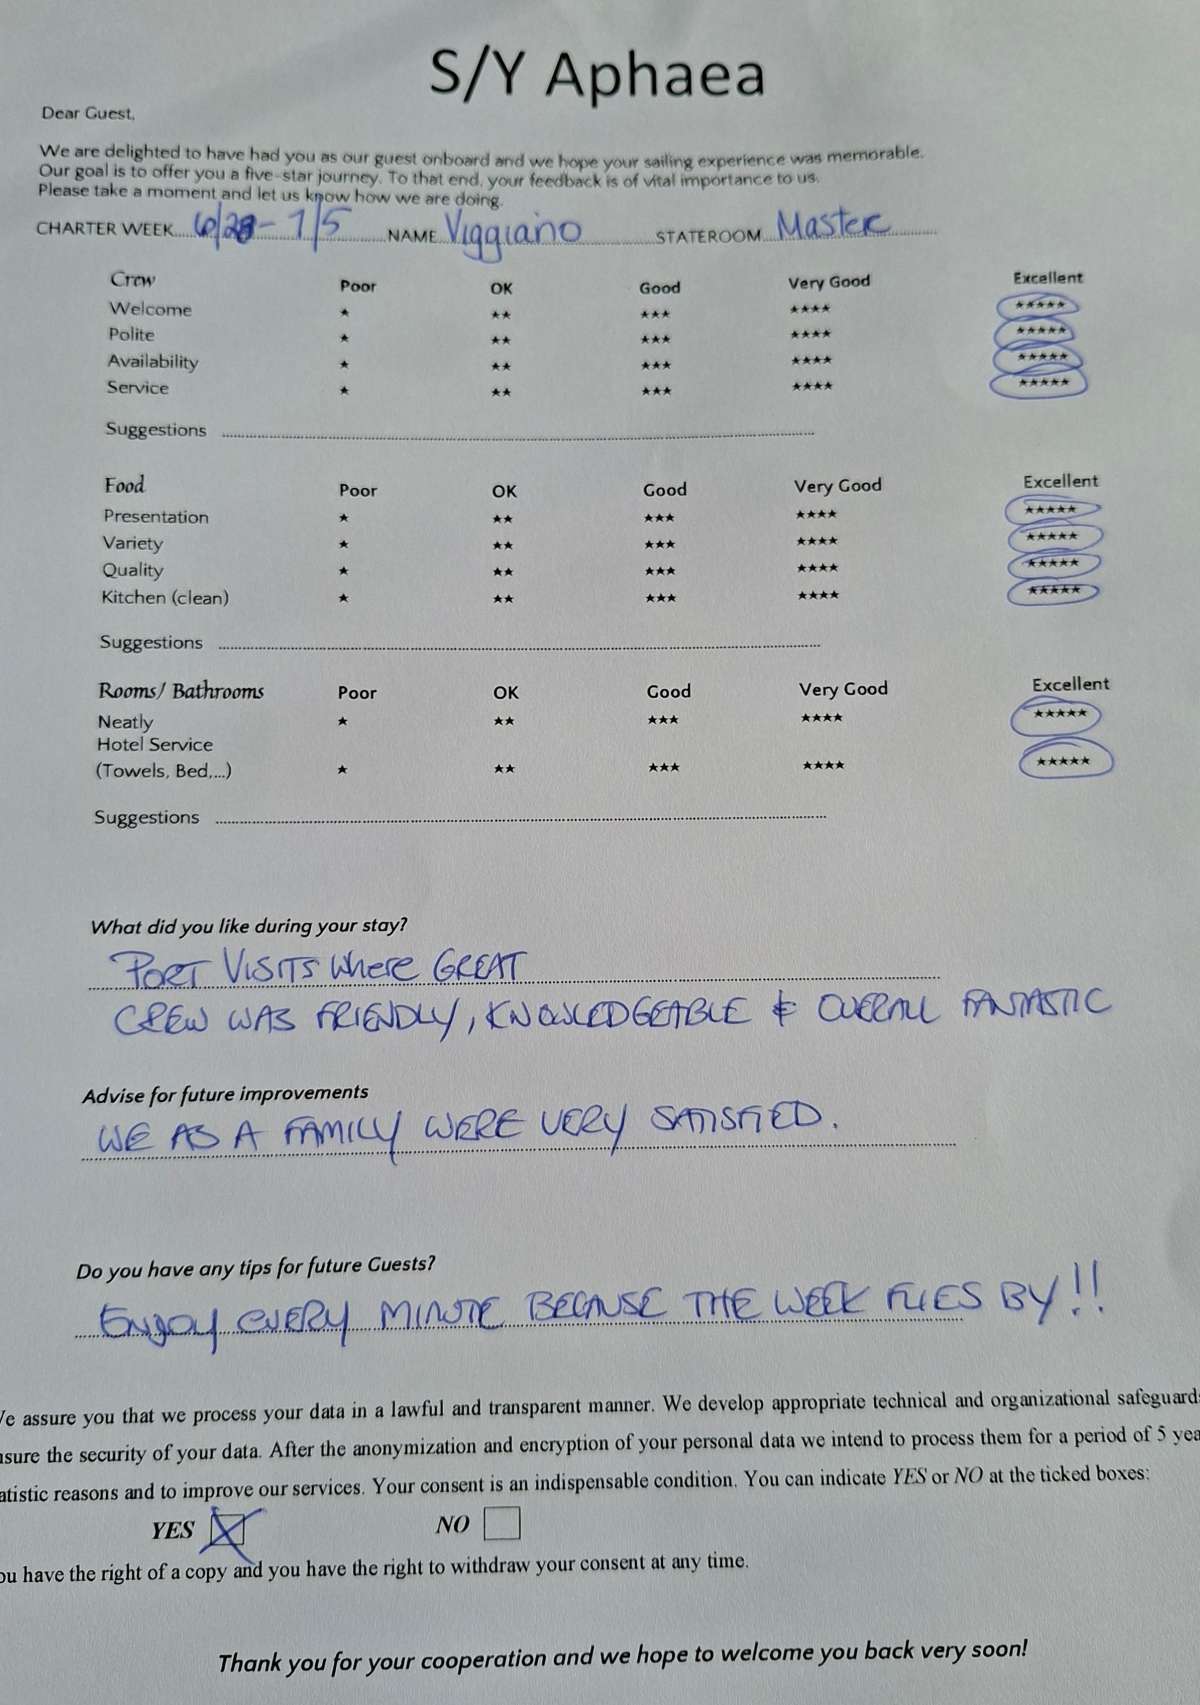 S/Y Aphaea
Dear Guest,
We are delighted to have had you as our guest onboard and we hope your sailing experience was memorable.
Our goal is to offer you a five-star journey. To that end, your feedback is of vital importance to us.
Please take a moment and let us know how we are doing.
CHARTER WEEK 6/28 - 7/5 NAME Viggiano STATEROOM Master
Crew Poor OK Good Very Good Excellent
Welcome ★ ★★ ★★★ ★★★★ ★★★★★
Polite ★ ★★ ★★★ ★★★★ ★★★★★
Availability ★ ★★ ★★★ ★★★★ ★★★★★
Service ★ ★★ ★★★ ★★★★ ★★★★★
Suggestions
Food Poor OK Good Very Good Excellent
Presentation ★ ★★ ★★★ ★★★★ ★★★★★
Variety ★ ★★ ★★★ ★★★★ ★★★★★
Quality ★ ★★ ★★★ ★★★★ ★★★★★
Kitchen (clean) ★ ★★ ★★★ ★★★★ ★★★★★
Suggestions
Rooms/ Bathrooms Poor OK Good Very Good Excellent
Neatly ★ ★★ ★★★ ★★★★ ★★★★★
Hotel Service
(Towels, Bed,...) ★ ★★ ★★★ ★★★★ ★★★★★
Suggestions
What did you like during your stay?
PORT VISITS Where GREAT
CREW WAS FRIENDLY, KNOWLEDGEABLE & OVERALL FANTASTIC
Advise for future improvements
WE AS A FAMILY WERE VERY SATISFIED.
Do you have any tips for future Guests?
ENJOY EVERY MINUTE BECAUSE THE WEEK FLIES BY!!
We assure you that we process your data in a lawful and transparent manner. We develop appropriate technical and organizational safeguards
nsure the security of your data. After the anonymization and encryption of your personal data we intend to process them for a period of 5 yea
atistic reasons and to improve our services. Your consent is an indispensable condition. You can indicate YES or NO at the ticked boxes:
YES NO
ou have the right of a copy and you have the right to withdraw your consent at any time.
Thank you for your cooperation and we hope to welcome you back very soon!